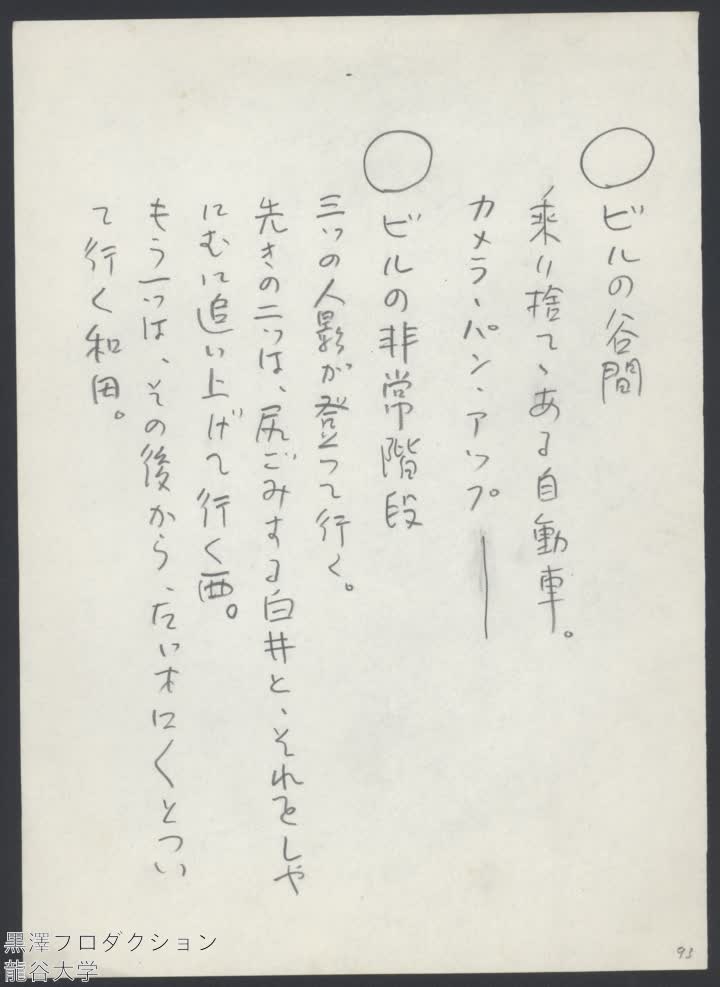 ○ビルの谷間
乗り捨てゝある自動車。
カメラ、パン・アップ。――
○ビルの非常階段
三つの人影が登って行く。
先きの二つは、尻ごみする白井と、それをしや
にむに追い上げて行く西。
もう一つは、その後から、たい木にくとつい
て行く和田。
93
黒澤プロダクション
龍谷大学